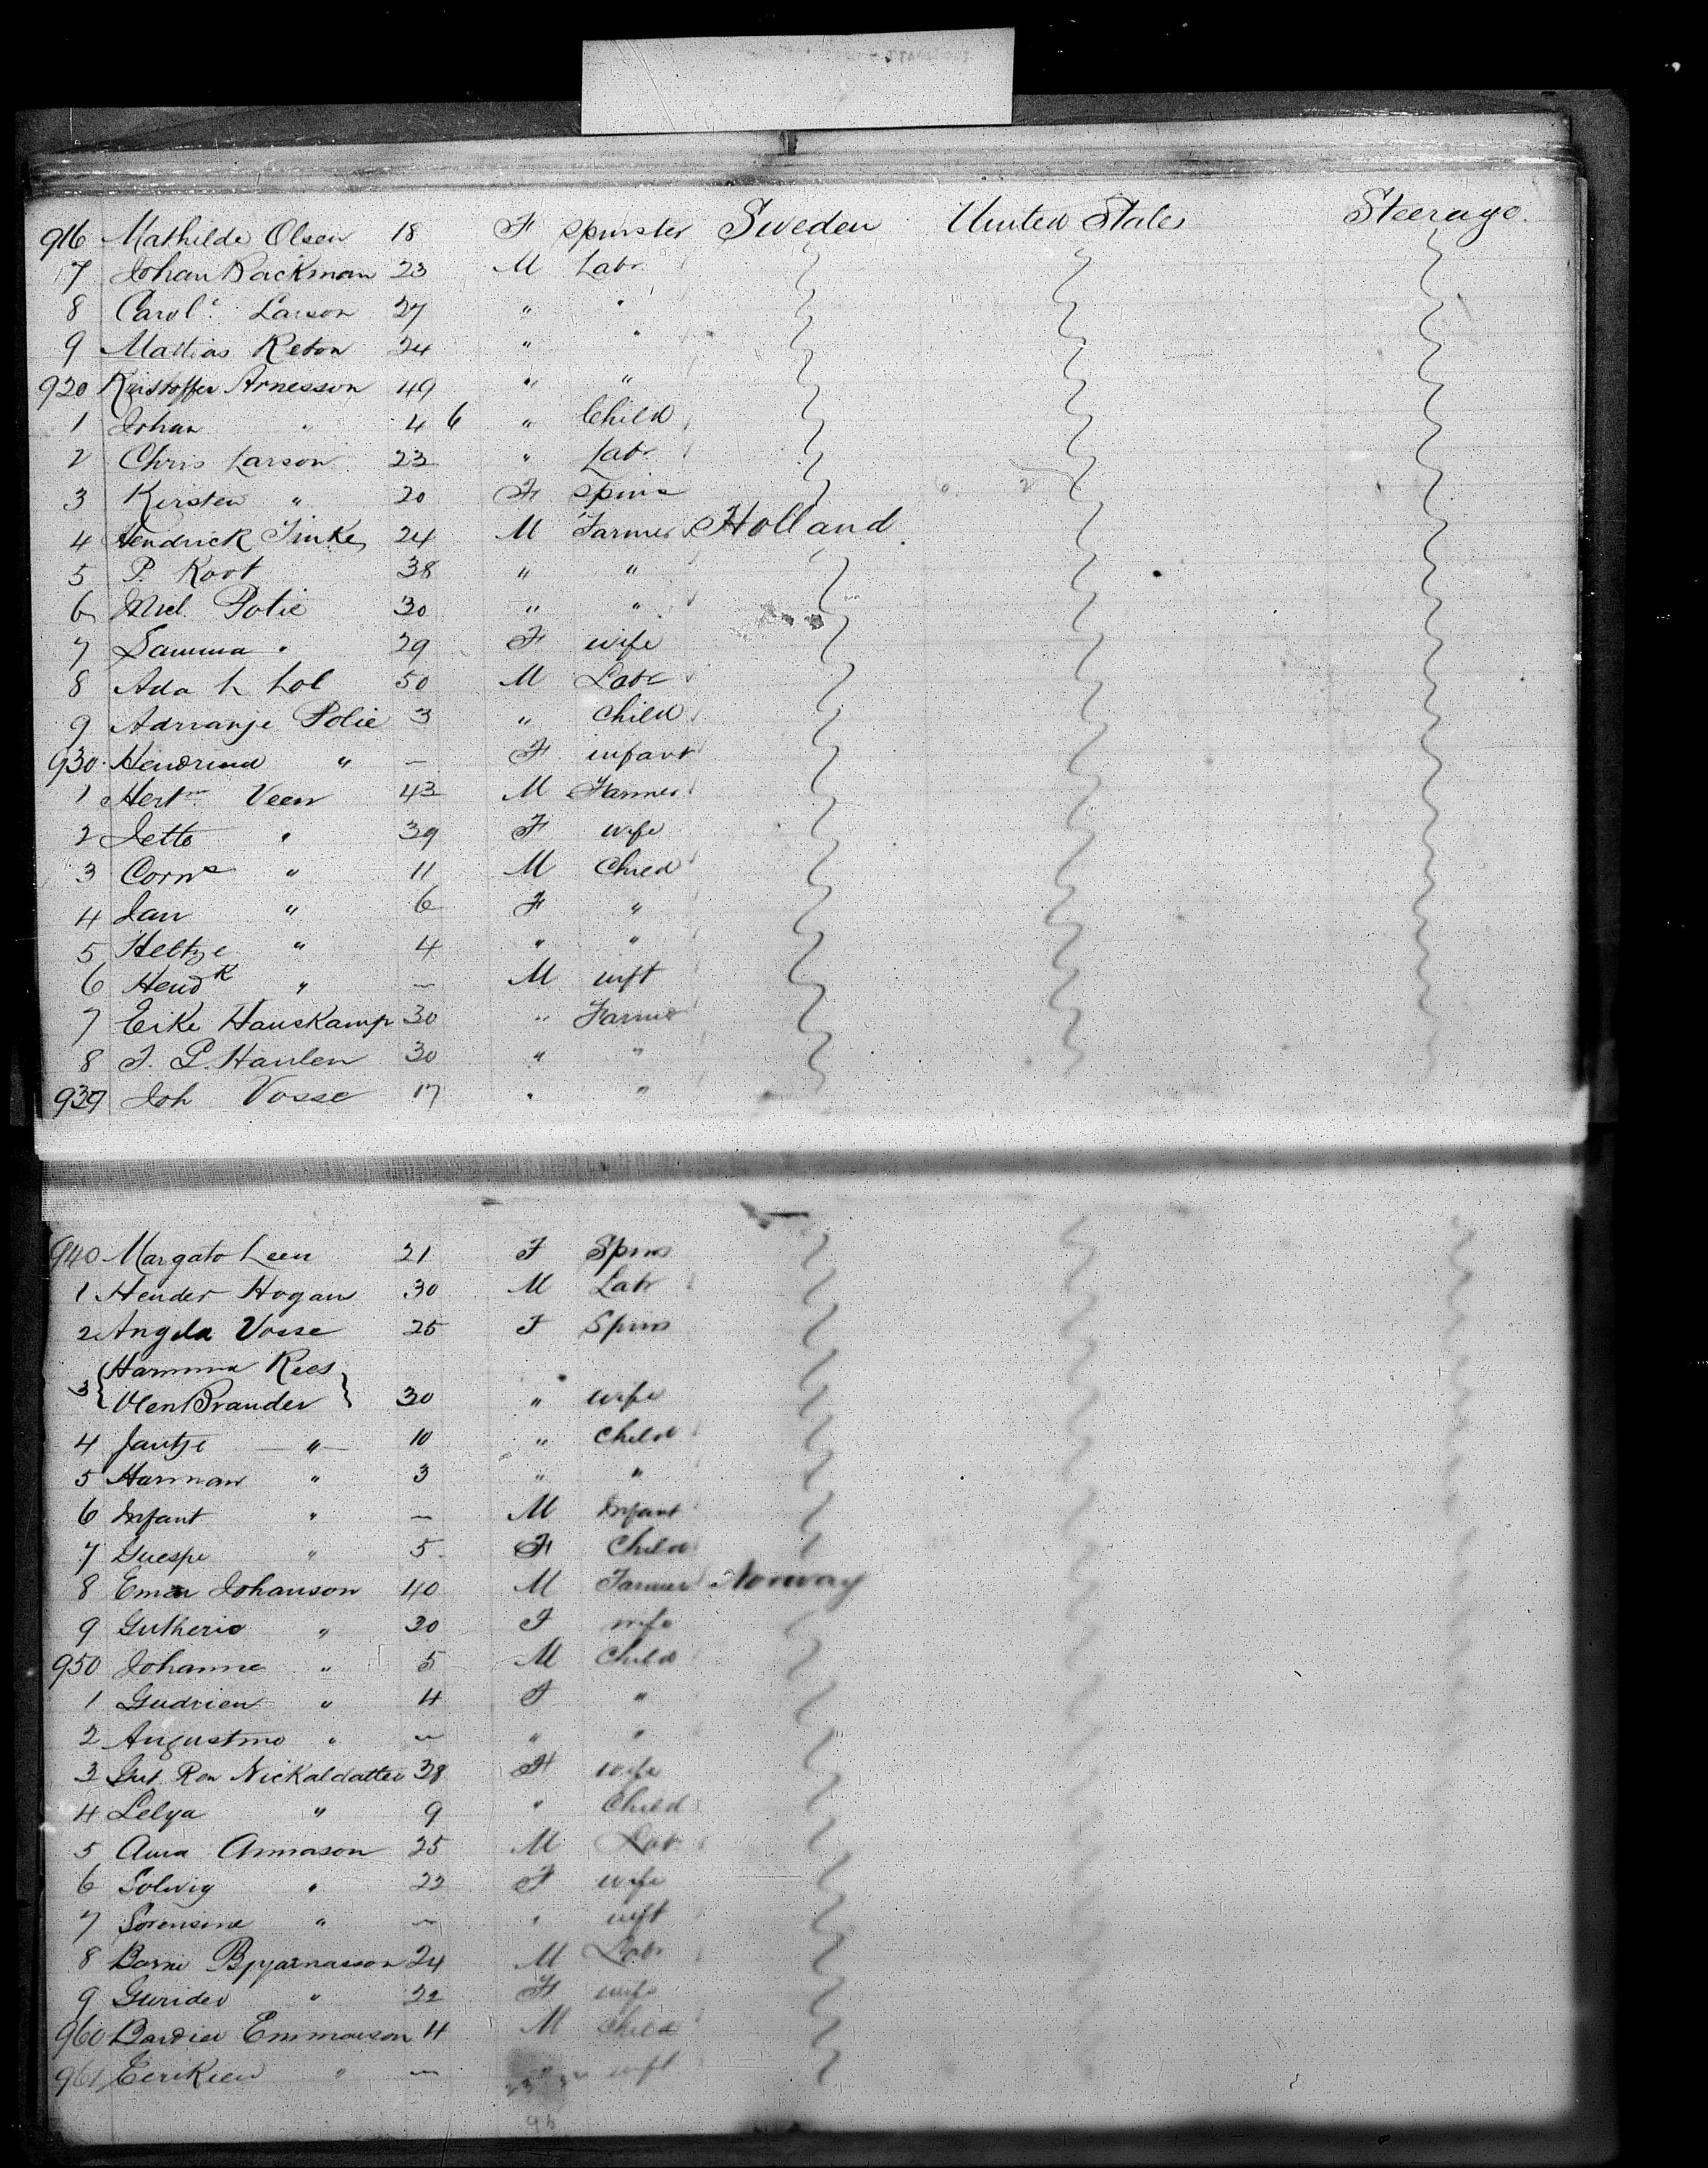 916 Mathilde Olsen 18 F Spinster Sweden United States Steerage.
7 Johan Backman 23 M Labr
8 Carolc. Larson 27 " "
9 Mattias Reton 24 " "
920 Kristoffer Arnesson 49 " "
1 Johan " 4 6 " Child
2 Chris Larson 23 " Labr
3 Kirsten " 20 F Spins
4 Hendrick Tinke 24 M Farmer Holland
5 P. Koot 38 " "
6 Mel. Polie 30 " "
7 Samma " 29 F wife
8 Ada L Lol 50 M Labr
9 Adrianje Polie 3 " child
930 Hendrina " — F infant
1 Hertm Veen 43 M Farmer
2 Jette " 39 F wife
3 Corns " 11 M Child
4 Jan " 6 F "
5 Heltze " 4 " "
6 Hendk " — M inft
7 Eike Hauskamp 30 " Farmer
8 J. P. Haulen 30 " "
939 Joh Vosse 17 " "
940 Margato Leen 21 F Spins
1 Hender Hogan 30 M Labr
2 Angela Vosse 25 F Spins
Hamma Rees
3 Brander 30 " wife
4 Jantje " 10 " Child
5 Harman " 3 " "
6 Infant " — M Infant
7 Guespe " 5 F Child
8 Johanson 40 M Farmer Norway
9 Gutherio " 30 F wife
950 Johanne " 5 M Child
1 Gudrien " 4 F "
2 Augustino " — " "
3 Nickaldatter 38 F wife
4 Lelya " 9 " Child
5 Anna Annason 25 M Labr
6 Solvig " 22 F wife
7 Sorensine " — " inft
8 Barni Bjyarnasson 24 M Labr
9 Gurider " 22 F wife
960 Bardier Emmorson 4 M Child
961 Eerikien " — " inft